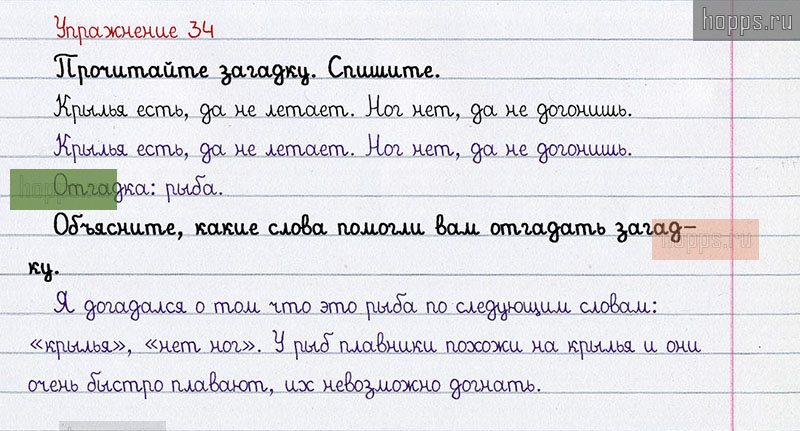 hopps.ru
Упражнение 34
Прочитайте загадку. Спишите.
Крылья есть, да не летает. Ног нет, да не догонишь.
Крылья есть, да не летает. Ног нет, да не догонишь.
hopps.ru
Отгадка: рыба.
Объясните, какие слова помогли вам отгадать загад-
hopps.ru
ку.
Я догадался о том что это рыба по следующим словам:
«крылья», «нет ног». У рыб плавники похожи на крылья и они
очень быстро плавают, их невозможно догнать.